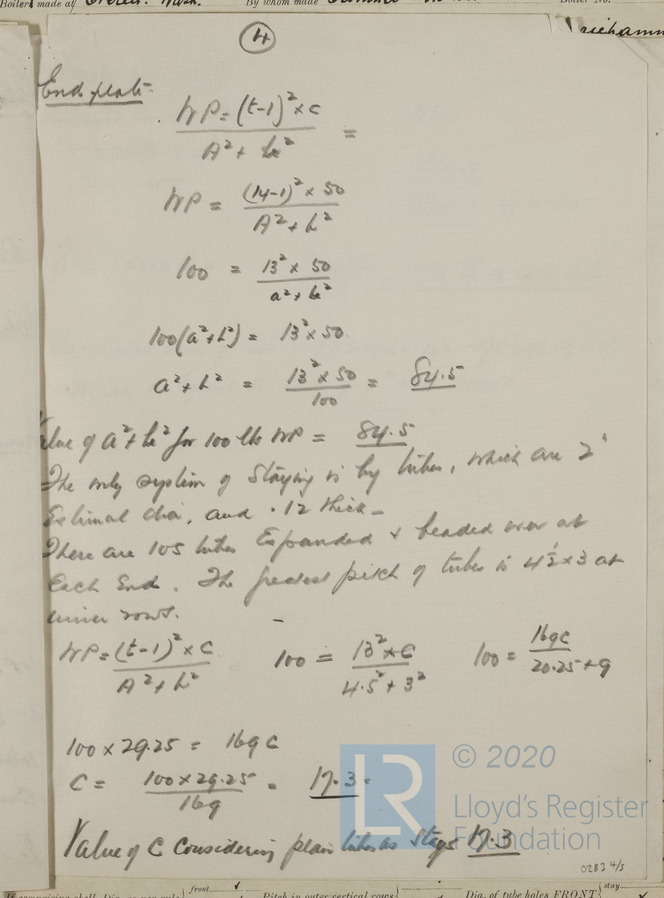 Boiler made at
By whom made
Boiler No.
4
End plate
WP = (t-1)² × C
A² + b²
=
WP = (14-1)² × 50
A² + b²
100 = 13² × 50
a² + b²
100(a²+b²) = 13² × 50
a² + b² = 13² × 50 = 84.5
100
Value of a² + b² for 100 lbs WP = 84.5
The only system of Staying is by tubes, which are 2"
External dia, and .12 thick -
There are 105 tubes Expanded & beaded over at
Each End. The greatest pitch of tubes is 4½ × 3 at
inner rows.
WP = (t-1)² × C
A² + b²
100 = 13² × C
4.5² + 3²
100 = 169C
20.25 + 9
100 × 29.25 = 169 C
C = 100 × 29.25 = 17.3
169
Value of C Considering plain tubes as Stays 17.3
LR
© 2020
Lloyd's Register
Foundation
0283 4/5
front
Pitch in outer vertical rows
Dia. of tube holes FRONT
stay